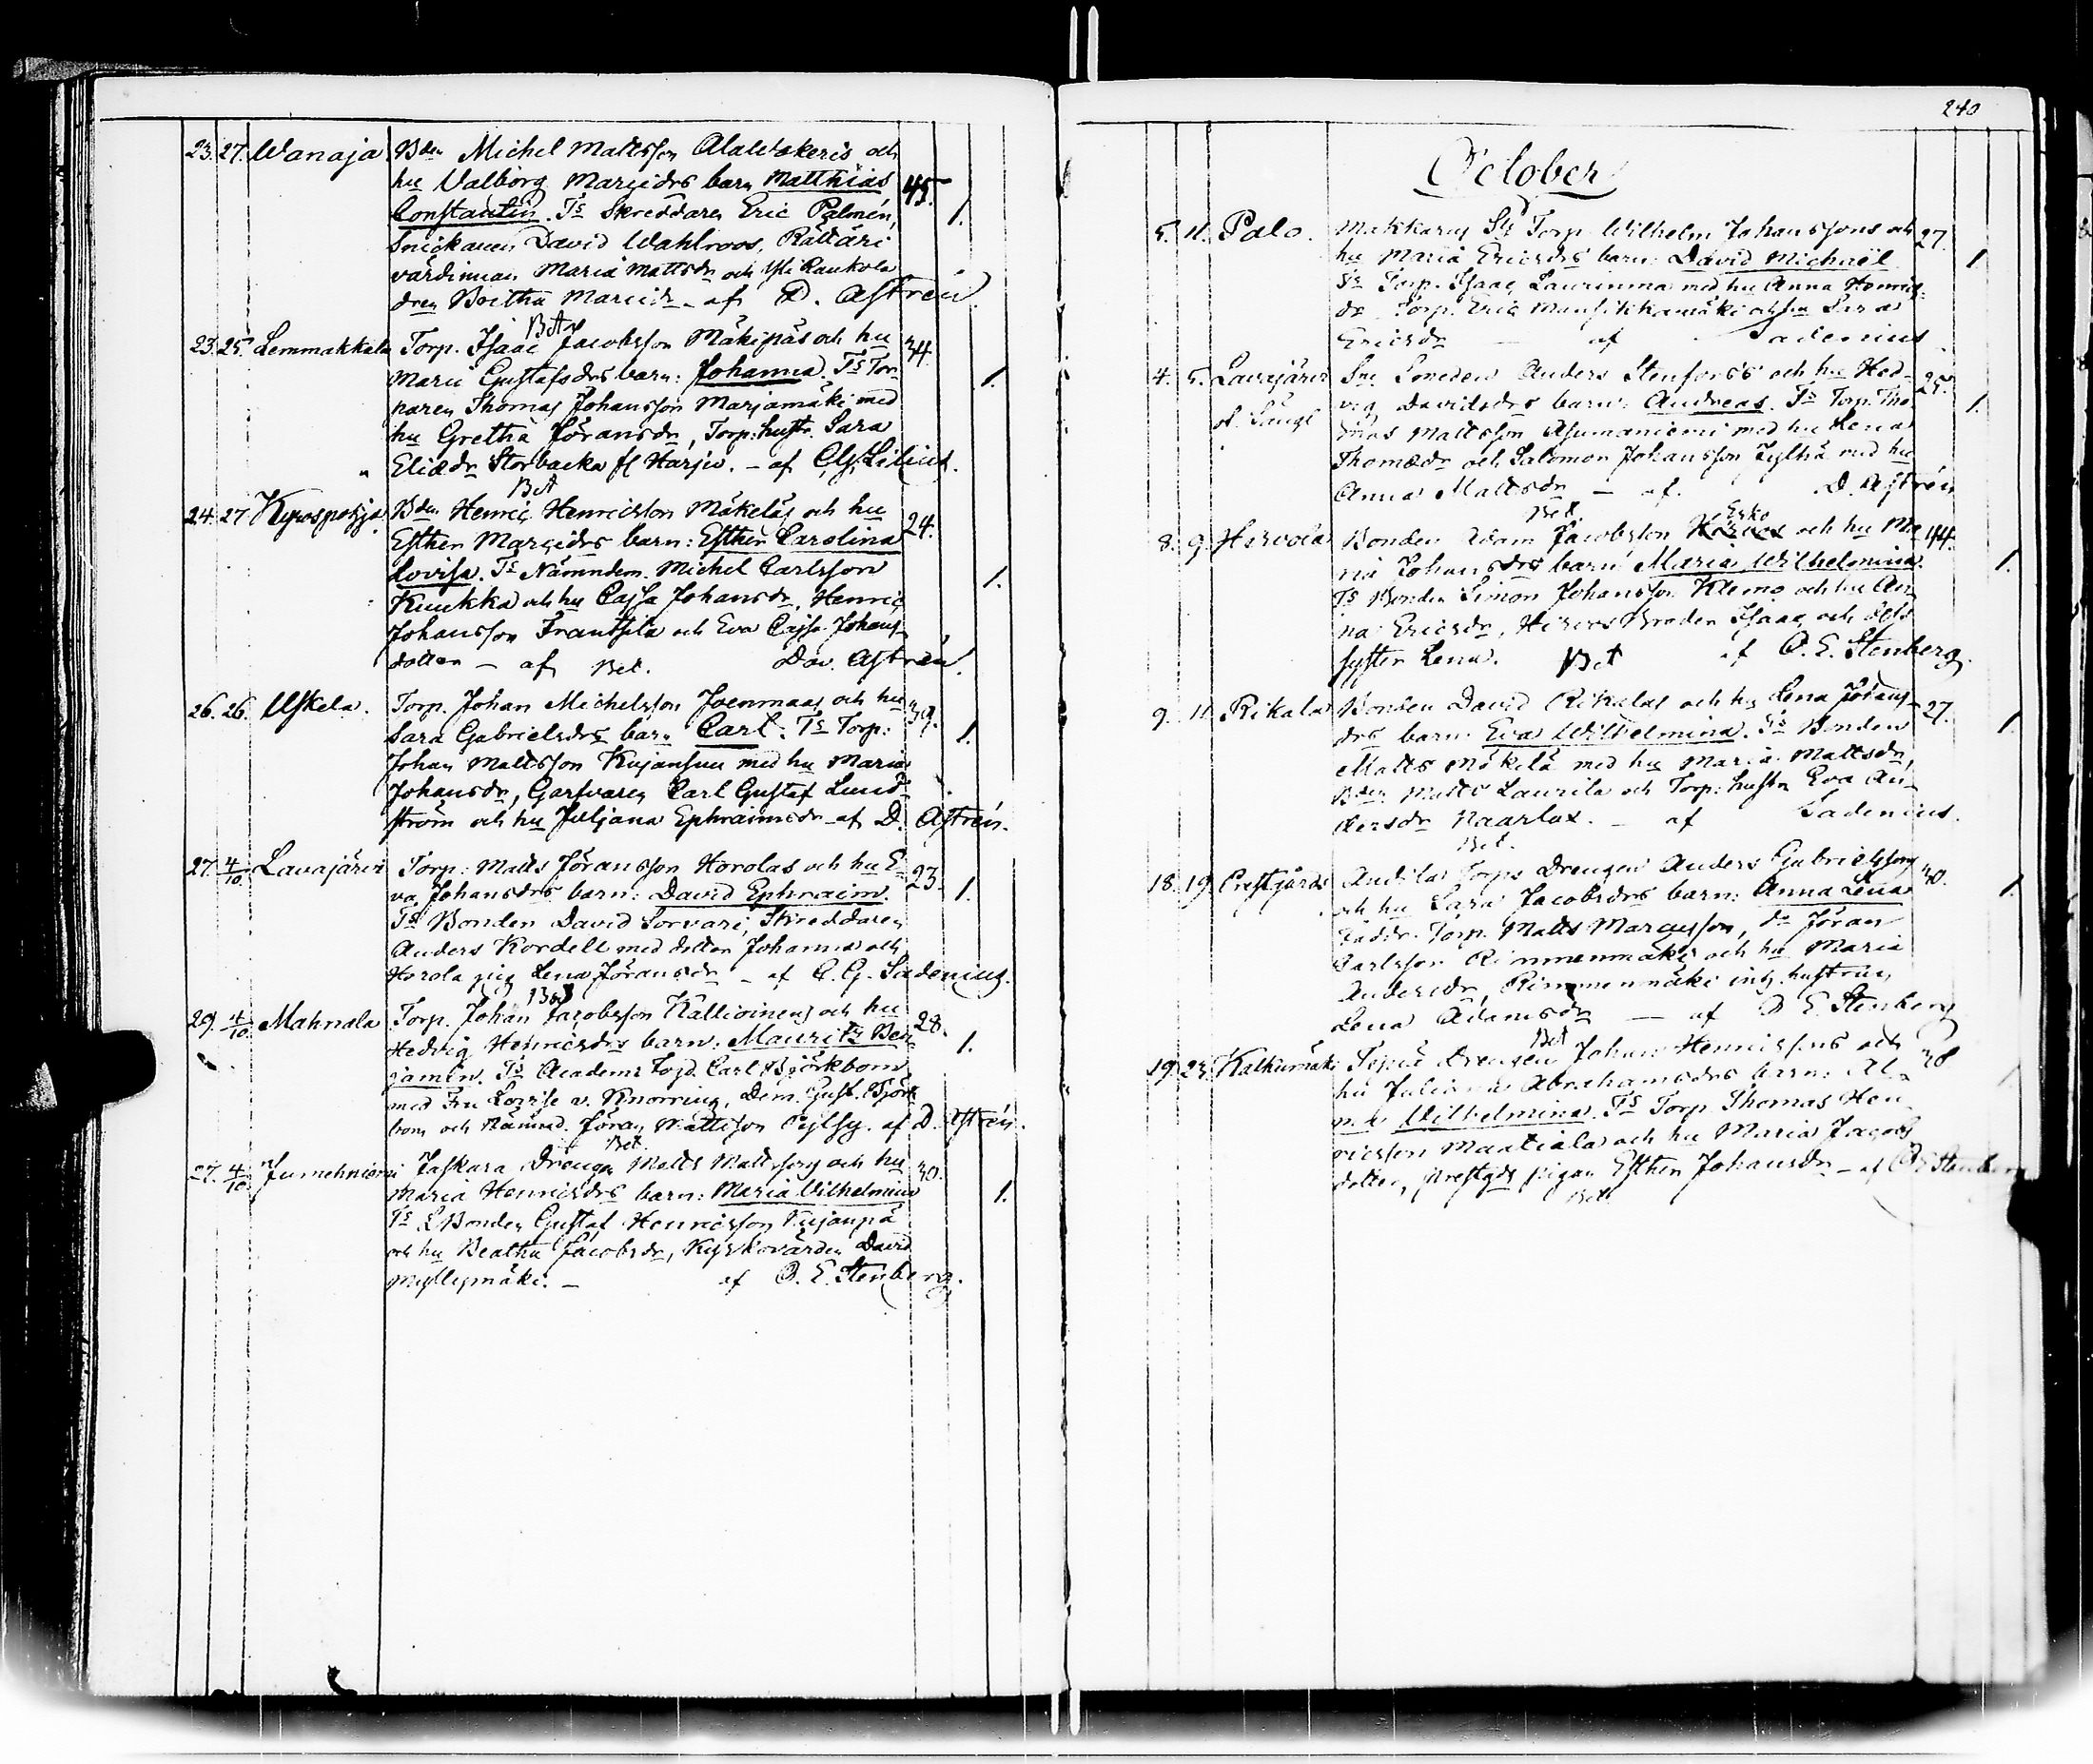 23. 27. Wanaja Bden Michel Mattsson och
hu Valborg Marcidrs barn Matthias 45.
Constantin. Ts Skreddaren Eric Palmén, 1.
Snickaren David Wahlroos, Rättäri
värdinnan Maria Mattsdr och Yli Raukola
dren Beitha Marcidr - af D. Astrén
Bet
23. 25. Lemmakkala Torp. Isaac Jacobsson Mäkipäs och hu 34.
Maria Gustafsdrs barn: Johanna. Ts Tor- 1.
paren Thomas Johansson Marjamäki med
hu Gretha Göransdr, Torp: hustr. Sara
Eliædr Storbacka fr Harju. - af Lilius.
Bet
24. 27. Kyrospohja Bden Henric Henricsson Mäkeläs och hu 24.
Esther Marcidrs barn: Esther Carolina
Lovisa. Ts Nämndem. Michel Carlsson 1.
Kuukka och hu Cajsa Johansdr, Henric
Johansson Frantsila och Eva Cajsa Johans-
dotter - af Dav. Astrén.
Bet.
26. 26. Uskela. Torp. Johan Michelsson Joenmaas och hu 39.
Sara Gabrielsdrs barn Carl. Ts Torp: 1.
Johan Mattsson Kujansuu med hu Maria
Johansdr, Garfvaren Carl Gustaf Lund-
ström och hu Juljana Ephraimsdr - af D. Astrén.
27. 4/10. Lavajärvi Torp: Matts Göransson Horolas och hu E- 23.
va Johansdrs barn: David Ephraim. 1.
Ts Bonden David Sorvari, Skreddaren
Anders Kordell med dotter Johanna och
Horola pig Lena Göransdr - af C. G. Sadenius.
Bet
29. 4/10 Mahnala Torp. Johan Jacobsson Kallioinens och hu 28.
Hedvig Henricsdrs barn: Mauritz Ben- 1.
jamin. Ts Academi Fogd. Carl Björkbom
med Fru Lovise v. Knorring, Dem. Gust. Björk
bom och Nämnd. Göran Mattsson Pylsy. af D. Astrén.
Bet.
27. 4/10 Jumehniemi Jaskara Drengen Matts Mattssons och hu 30.
Maria Henricsdrs barn: Maria Vilhelmina 1.
Ts Bonden Gustaf Henricsson Kujanpä
och hu Beatha Jacobsdr, Kyrkovärden David
Myllymäki. - af O. E. Stenberg.
240
October
5. 11. Palo. Makkarus Torp. Wilhelm Johanssons och 27.
hu Maria Ericsdrs barn: David Michaël 1.
Ts Torp. Isaac Laurinma med hu Anna Henrics-
dr Torp. Eric Mansikkamäki och hu Sara
Ericsdr - af Sadenius
4. 5. Lavajärvi Smeden Anders Stenforss och hu Hed- 25.
vig Davidsdrs barn: Andreas. Ts Torp. Tho- 1.
mas Mattsson Asumaniemi med hu Lena
Thomædr och Salomon Johansson Kylhä med hu
Anna Mattsdr - af D. Astrén
Bet.
8. 9. Hervola Bonden Adam Jacobsson Esko och hu Ma 44.
ria Johansdrs barn: Maria Wilhelmina. 1.
Ts Bonden Simon Johansson Klemo och hu An-
na Ericsdr, Broder Isaac och
syster Lena. af O. E. Stenberg.
Bet
9. 11. Rikala Bonden David Rikalas och hu Lena Johans- 27.
drs barn: Eva Wilhelmina. Ts Bonden 1.
Matts Mäkelä med hu Maria Mattsdr,
Bden Matts Laurila och Torp: hustr Eva An-
dersdr Naarlax. - af Sadenius.
Bet.
18. 19. Prestgårds Torps Drengen Anders Gabrielssons 30.
och hu Sara Jacobsdrs barn: Anna Lena 1.
Faddr. Torp. Matts Marcusson, do Göran
Carlsson Rimmenmäki och hu Maria
Andersdr, Rimmenmäki hustrun
Lena Adamsdr - af O. E. Stenberg
Bet
19. 23. Kalkumäki Drengen Johan Henricssons och 38
hu Juliana Abrahamsdrs barn:
Wilhelmina. Ts Torp Thomas Hen-
ricsson Mantiala och hu Maria Jacobs
dotter, Prestgds pigan Esther Johansdr - af O E Stenberg
Bet